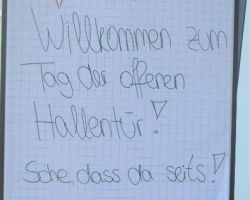 Willkommen zum
Tag der offenen
Hallentür!
Sche, dass da seits!